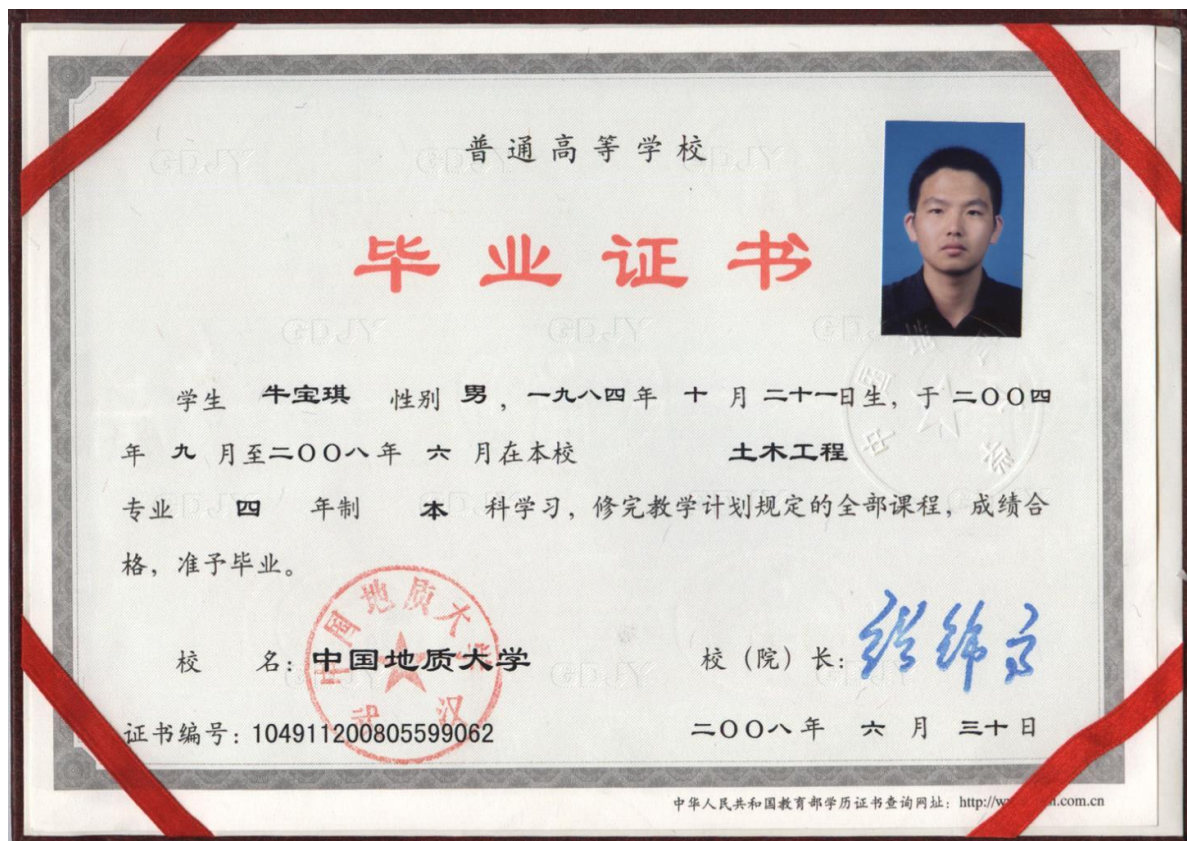 普通高等学校
毕业证书
学生 牛宝琪 性别 男，一九八四年 十 月 二十一日生，于 二〇〇四
年 九 月至二〇〇八年 六 月在本校 土木工程
专业 四 年制 本 科学习，修完教学计划规定的全部课程，成绩合
格，准予毕业。
中国地质大学
武汉
校 名：中国地质大学
校（院）长：
证书编号：104911200805599062
二〇〇八年 六 月 三十日
中华人民共和国教育部学历证书查询网址：http://w .com.cn
GDJY